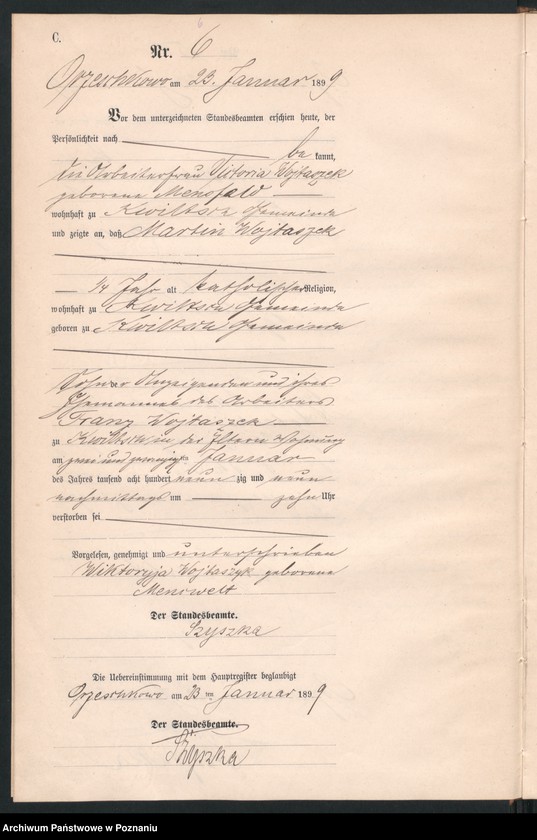 C.
Nr. 6
Orzeschkowo am 23. Januar 1899
Vor dem unterzeichneten Standesbeamten erschien heute, der
Persönlichkeit nach
be kannt,
die Arbeiterfrau Victoria Wojtaszek
geborene Mensfeld
wohnhaft zu Kwiltsch Gemeinde
und zeigte an, daß Martin Wojtaszek
1/4 Jahr alt katholischer Religion,
wohnhaft zu Kwiltsch Gemeinde
geboren zu Kwiltsch Gemeinde
Sohn der Anzeigenden und ihres
Ehemannes des Arbeiters
Franz Wojtaszek
zu Kwiltsch in der Eltern Wohnung
am zwei und zwanzigsten Januar
des Jahres tausend acht hundert neun zig und neun
nachmittags um zehn Uhr
verstorben sei
Vorgelesen, genehmigt und unterschrieben
Wiktoryja Wojtaszyk geborene
Menswelt
Der Standesbeamte.
Szyszka
Die Uebereinstimmung mit dem Hauptregister beglaubigt
Orzeschkowo am 23 ten Januar 1899
Der Standesbeamte.
Szyszka
Archiwum Państwowe w Poznaniu